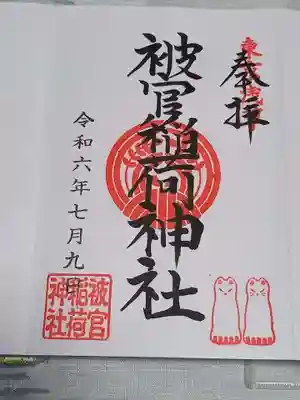 奉拝
被官稲荷神社
令和六年七月九日
被官
稲荷
神社